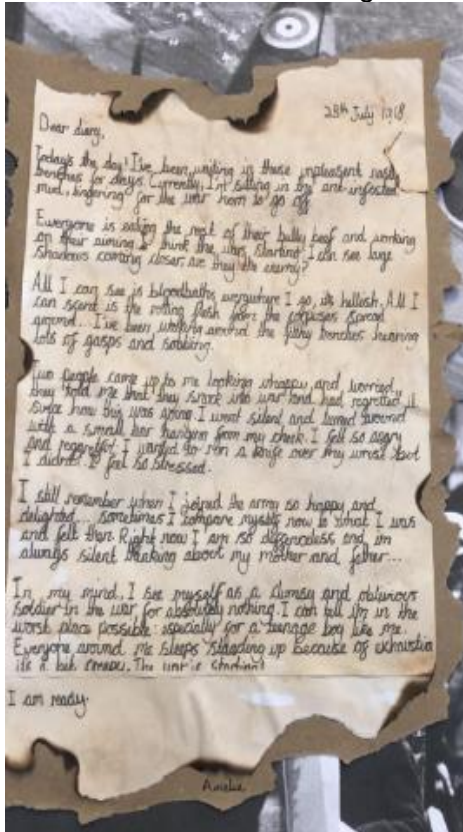 28th July 1918
Dear diary,
Today's the day! I've been waiting in these unpleasent nasty
trenches for days. Currently, I'm sitting in the ant-infested
mud, lingering for the war horn to go off.
Everyone is eating the rest of their bully beef and working
on their aiming. I think the wars starting, I can see large
shadows coming closer, are they the enemy?
All I can see is bloodbaths everywhere I go, its hellish. All I
can scent is the rotting flesh from the corpses spread
around... I've been walking around the filthy trenches hearing
lots of gasps and sobbing.
Two people came up to me looking unhappy and worried,
they told me that they snuck into war and had regretted it
since how this was going. I went silent and turned around
with a small tear hanging from my cheek. I felt so angry
and regretful I wanted to run a knife over my but
I didn't. I feel so stressed.
I still remember when I joined the army so happy and
delighted... sometimes I compare myself now to what I was
and felt then. Right now I am so defenceless and im
always silent thinking about my mother and father...
In my mind, I see myself as a clumsy and
soldier in the war for absolutely nothing. I can tell i'm in the
worst place possible: especially for a teenage boy like me.
Everyone around me sleeps standing up because of
its a bit creepy. The war is starting!
I am ready.
Amelia